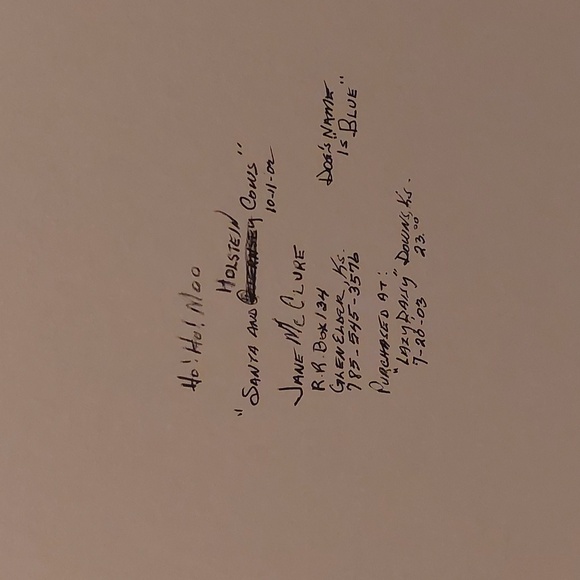 Ho! Ho! Moo
HOLSTEIN
"SANTA AND COWS"
10-11-02
JANE McCLURE
R.R. Box 134
GLEN ELDER, Ks.
785-545-3576
DOG'S NAME
IS "BLUE"
PURCHASED AT:
"LAZY DAISY" DOWNS, Ks.
7-20-03 23.00